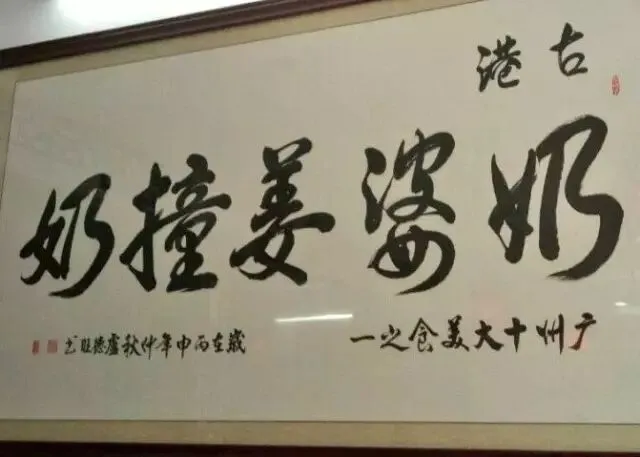 古港
奶婆姜撞奶
广州十大美食之一
歲在丙申年仲秋盧德旺书